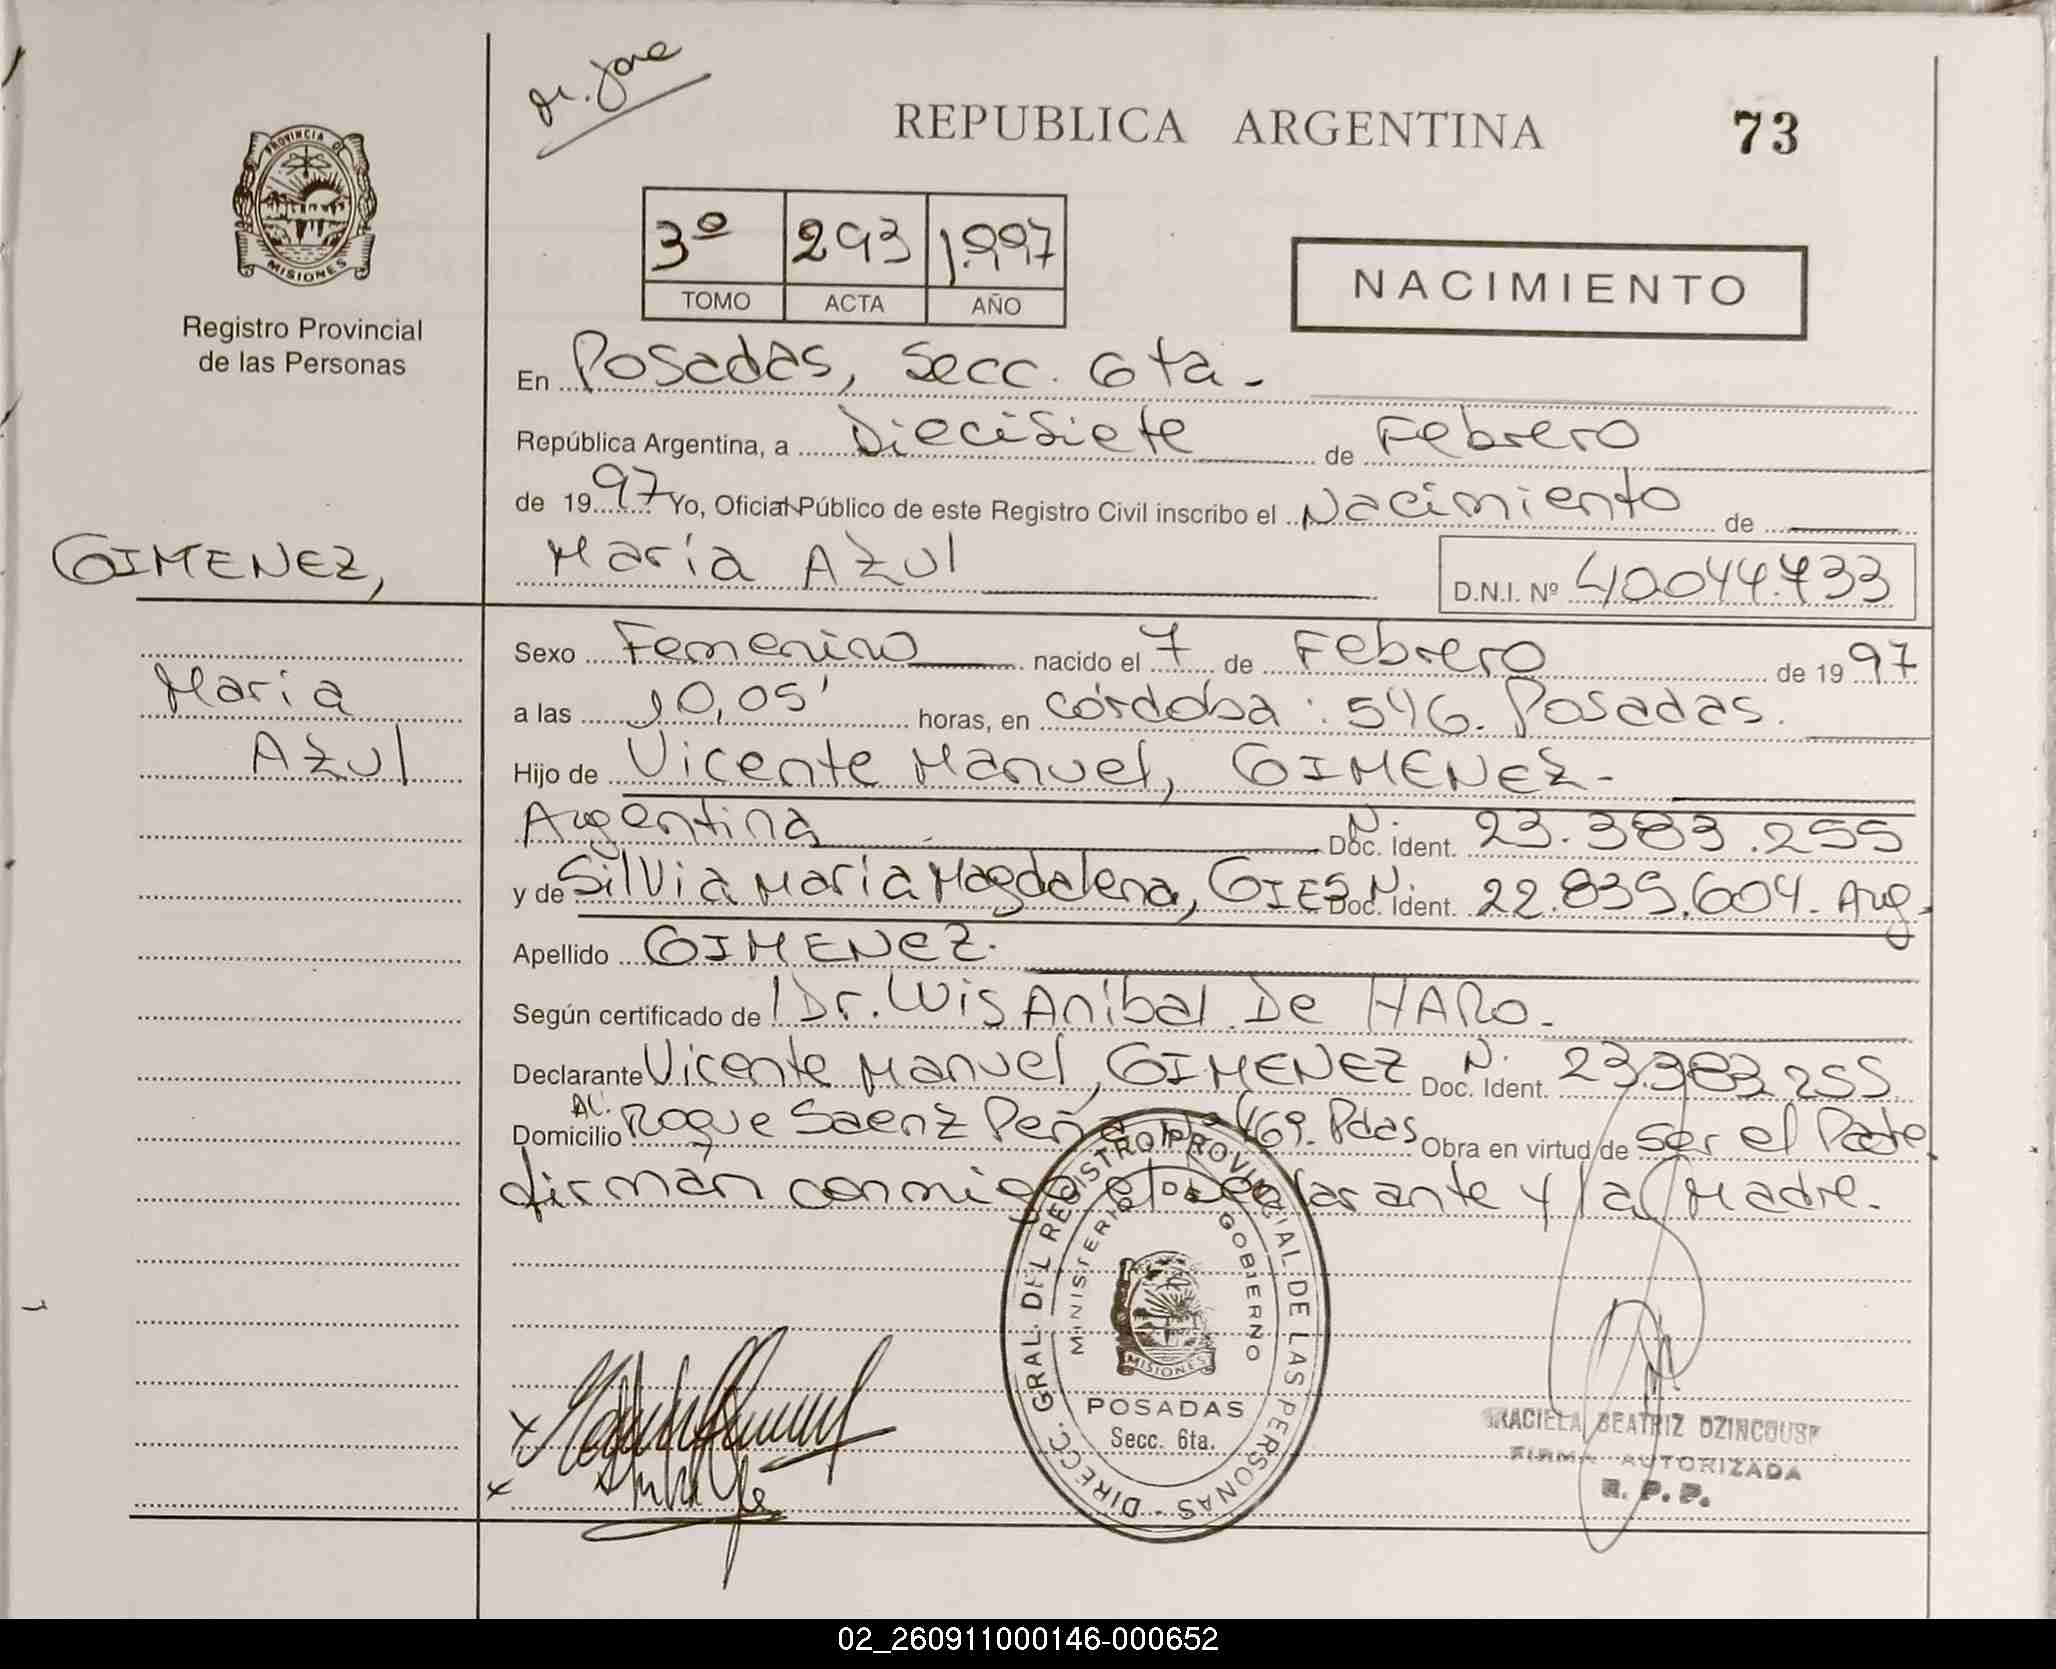 M. Jose
REPUBLICA ARGENTINA
73
PROVINCIA DE
MISIONES
Registro Provincial
de las Personas
3º 293 1.997
TOMO ACTA AÑO
NACIMIENTO
En Posadas, Secc. 6ta.-
República Argentina, a Diecisiete de Febrero
de 1997 Yo, Oficial Público de este Registro Civil inscribo el Nacimiento de
GIMENEZ,
María Azul
D.N.I. Nº 40.044.733
María
Azul
Sexo Femenino nacido el 7 de Febrero de 1997
a las 10,05' horas, en Córdoba: 546. Posadas.
Hijo de Vicente Manuel, GIMENEZ-
Argentina Doc. Ident. N. 23.383.255
y de Silvia María Magdalena, GIES Doc. Ident. N. 22.835.604. Arg.
Apellido GIMENEZ.
Según certificado de Dr. Luis Aníbal De HARO.
Declarante Vicente Manuel, GIMENEZ Doc. Ident. N. 23.383.255
Domicilio Av. Roque Saenz Peña 469. Pdas Obra en virtud de ser el Padre
firman conmigo el Declarante y la Madre.
DIRECC. GRAL. DEL REGISTRO PROVINCIAL DE LAS PERSONAS
MINISTERIO DE GOBIERNO
MISIONES
POSADAS
Secc. 6ta.
GRACIELA BEATRIZ
FIRMA AUTORIZADA
R. P. P.
02_260911000146-000652